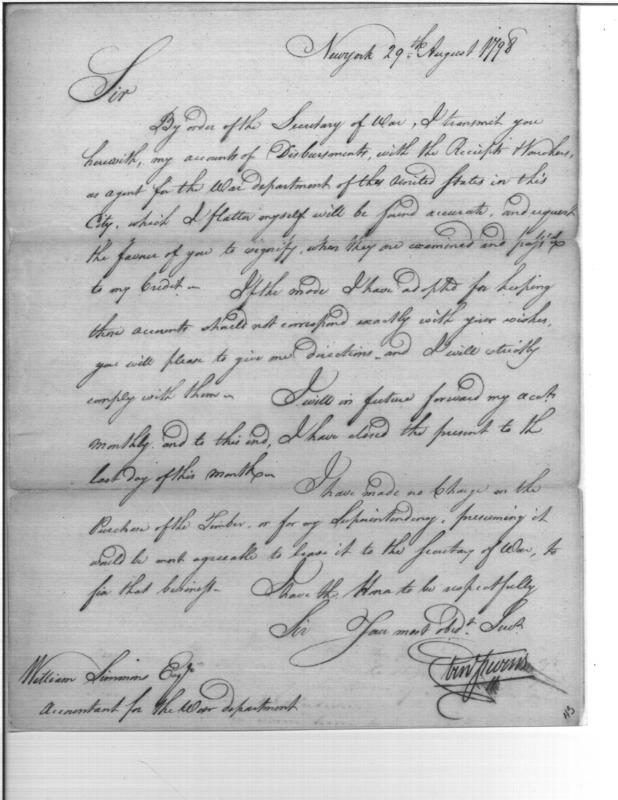 Newyork 29th August 1798
Sir
By order of the Secretary of War, I transmit you
herewith, my accounts of Disbursments, with the Receipts & Vouchers,
as agent for the War department of the United States in this
City, which I flatter myself will be found accurate, and request
the favour of you to signify, when they are examined and pass'd
to my Credit.— If the mode I have adopted for keeping
those accounts should not correspond exactly with your wishes,
you will please to give me directions, and I will strictly
comply with them— I will in future forward my accts
monthly, and to this end, I have closed the present to the
last day of this month—
I have made no Charge on the
Purchase of the Timber, or for my Superintendency, presuming it
would be most agreeable to leave it to the Secretary of War, to
fix that business— I have the Honor to be respectfully
Sir Your most obedt. Servt
William Simmons Esqr
Accountant for the War department
113